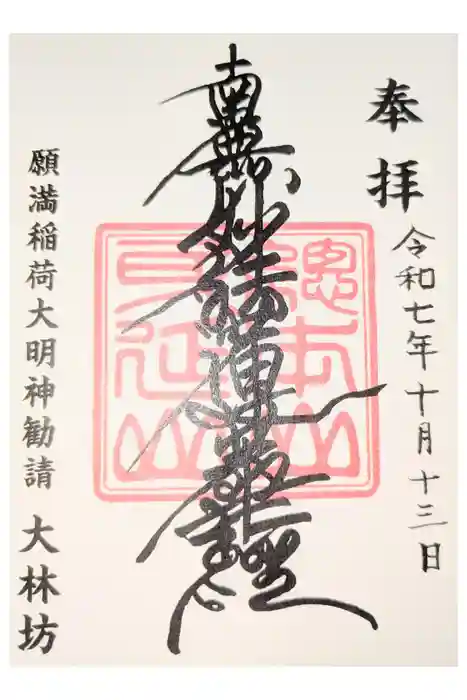 奉拝 令和七年十月十三日
南無妙法蓮華經
總本山
身延山
願満稲荷大明神勧請 大林坊